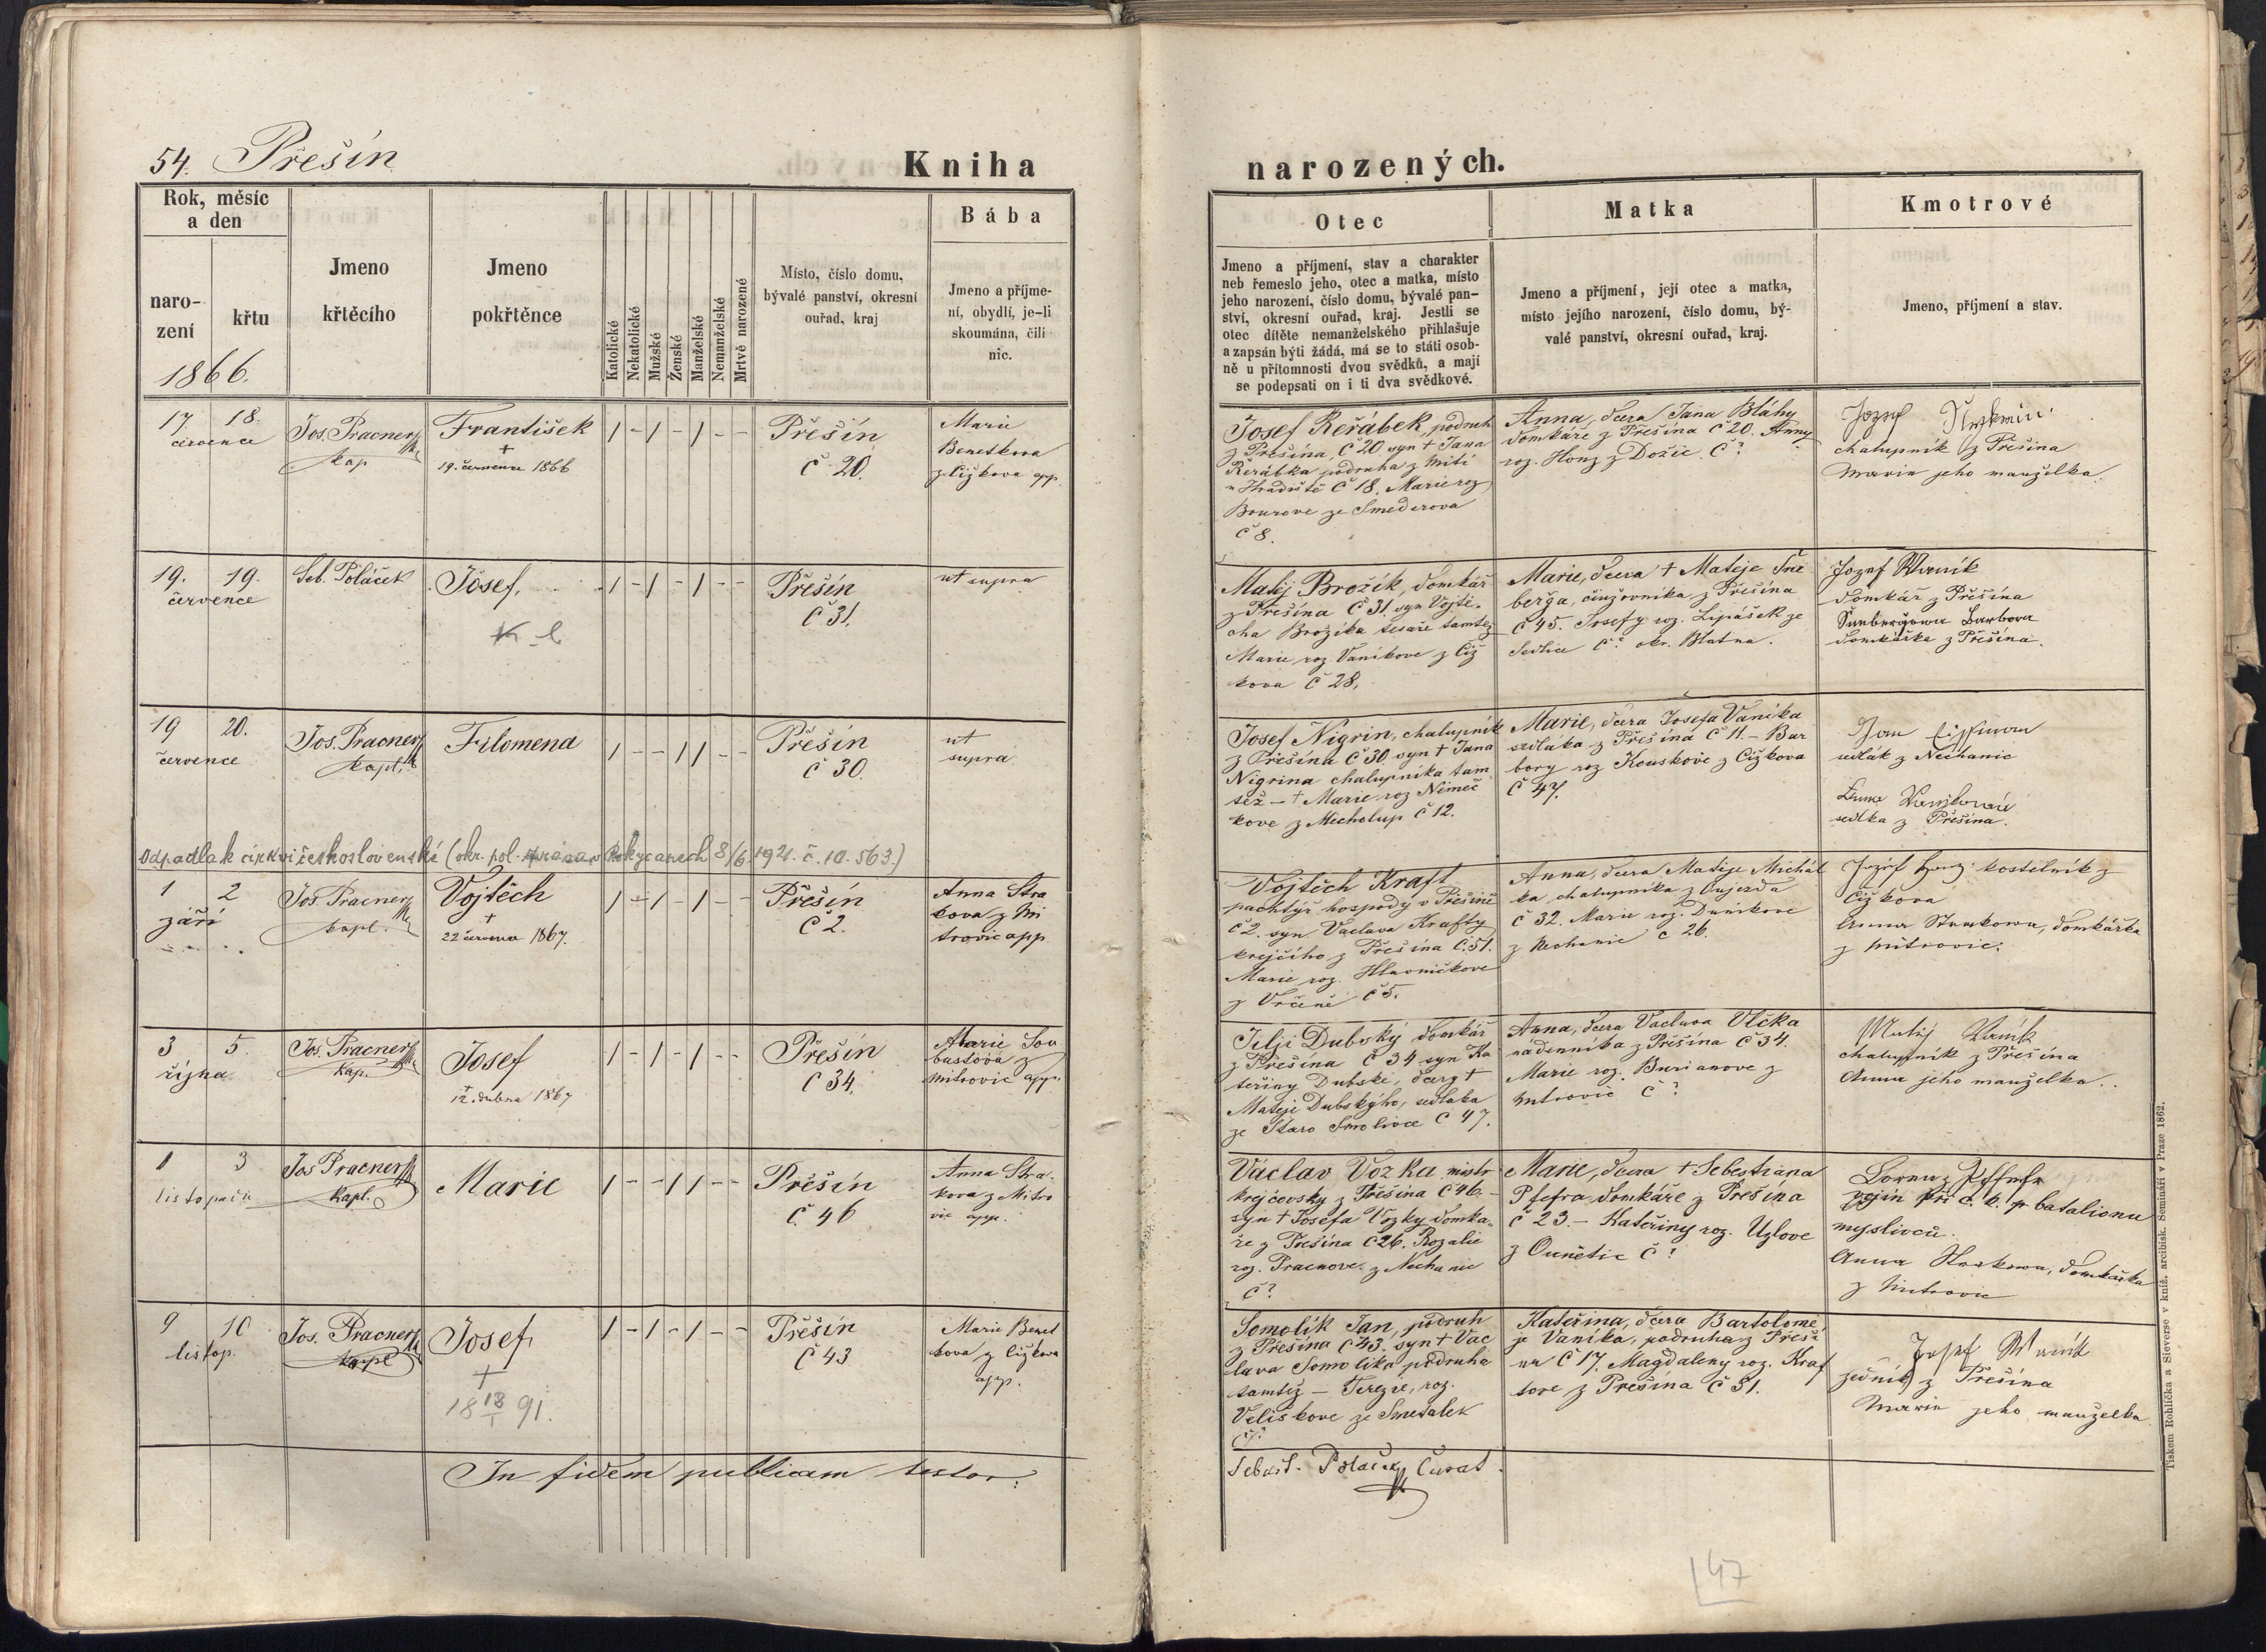 54. Přešín
Kniha
Rok, měsíc
a den
naro-
zení
křtu
1866.
Jmeno
křtěcího
Jmeno
pokřtěnce
Katolické
Nekatolické
Mužské
Ženské
Manželské
Nemanželské
Mrtvě narozené
Místo, číslo domu,
bývalé panství, okresní
ouřad, kraj
Bába
Jmeno a příjme-
ní, obydlí, je-li
skoumána, čili
nic.
17. 18.
července
Jos. Pracner
kap
František
+
19. července 1866
1 - 1 - 1 - -
Přešín
č 20.
Marie
Benetkova
z Čižkova app.
19. 19.
července
Seb. Poláček
Josef.
1 - 1 - 1 - -
Přešín
č 31.
ut supra
19 20.
července
Jos. Pracner
kapl.
Filomena
1 - - 1 1 - -
Přešín
č 30.
ut
supra.
Odpadla k církvi československé (okr. pol. správa v Rokycanech 8/6 1921. č. 10.563.)
1 2
září
Jos Pracner
kapl.
Vojtěch
+
22 července 1867.
1 - 1 - 1 - -
Přešín
č 2.
Anna Stra
kova z Mi
trovic app
3 5.
října
Jos. Pracner
Kap.
Josef
+
12. dubna 1867
1 - 1 - 1 - -
Přešín
č 34.
Marie Šou
bustova z
Mitrovic app.
1 3
listopadu
Jos Pracner
Kapl.
Marie
1 - - 1 1 - -
Přešín
č. 46
Anna Stra-
kova z Mitro
vic app.
9 10
listop.
Jos. Pracner
kapl
Josef
+
18 18/1 91.
1 - 1 - 1 - -
Přešín
č 43
Marie Benet
kova z Čižkova
app.
In fidem publicam testor:
narozených.
Otec
Jmeno a příjmení, stav a charakter
neb řemeslo jeho, otec a matka, místo
jeho narození, číslo domu, bývalé pan-
ství, okresní ouřad, kraj. Jestli se
otec dítěte nemanželského přihlašuje
a zapsán býti žádá, má se to státi osob-
ně u přítomnosti dvou svědků, a mají
se podepsati on i ti dva svědkové.
Matka
Jmeno a příjmení, její otec a matka,
místo jejího narození, číslo domu, bý-
valé panství, okresní ouřad, kraj.
Kmotrové
Jmeno, příjmení a stav.
Josef Reřábek, podruh
z Přešína, č 20 syn + Jana
Reřábka podruha z Miti
Hradiště č 18. Marie roz
Bourove ze Smederova
č 8.
Anna, dcera Jana Bláhy
domkáře z Přešína č 20. Anny
roz. Honz z Dožic č ?
Jozef
chalupník z Přešína
Marie jeho manželka.
Matěj Brožík, domkář
z Přešína č 31. syn Vojtě-
cha Brožíka tesaře tamtéž
Marie roz Vaníkove z Čiž
kova č 28.
Marie, dcera + Matěje Šne
berga, činžovníka z Přešína
č 45. Josefy roz. Lipášek ze
Sedlice č ? okr. Blatna.
Jozef Waník
domkář z Přešína
Šnebergowa Barbora
domkářka z Přešína.
Josef Nigrin, chalupník
z Přešína č 30. syn + Jana
Nigrina chalupníka tam
též - + Marie roz Němeč
kove z Mecholup č 12.
Marie, dcera Josefa Vaníka
sedláka z Přešína č 11. - Bar
bory roz Kouskove z Čižkova
č 47.
Jan
sedlák z Nechanic
sedlka z Přešína.
Vojtěch Kraft
pachtýř hospody v Přešíně
č 2. syn Václava Krafty
krejčího z Přešína č. 51.
Marie roz. Hlavničkove
z Vrčeně č 5.
Anna, dcera Matěje Michál
ka chalupníka z Oujezda
č 32. Marie roz. Dunikove
z Nechanic č 26.
Jozef Honz kostelník z
Čižkova
Anna Strakowa, domkářka
z Mitrovic.
Jiljí Dubský domkář
z Přešína č 34 syn Ka
teřiny Dubské, dcery +
Matěje Dubskýho, sedláka
ze Staro Smolivce č 47.
Anna, dcera Vaclava Vlčka
nadenníka z Přešína č 34.
Marie roz. Burianove z
Mitrovic č ?
Matěj Waník
chalupník z Přešína
Anna jeho manželka.
Václav Vozka mistr
krejčovský z Přešína č 46. -
syn + Josefa Vozky domka-
ře z Přešína č 26. Rozalie
roz. Pracnove z Nechanic
č ?
Marie, dcera + Sebestiana
Pfefra domkáře z Přešína
č 23. - Kateřiny roz. Uzlove
z Ounětic č ?
Lorenz Pffefr
vojín při c. k. p batalionu
myslivců.
Anna Strakowa, domkářka
z Mitrovic
Somolík Jan, podruh
z Přešína č 43. syn + Vac
lava Somolíka podruha
tamtéž - Terezie, roz.
Veliskove ze Smedalek
č ?
Kateřina, dcera Bartolomě
je Vaníka, podruha z Přeší
na č 17. Magdaleny roz. Kraf
tove z Přešína č 51.
Josef Waník
zedník z Přešína
Marie jeho manželka
Sebast. Poláček Curat.
47
Tiskem Rohlíčka a Sieverse v kníž. arcibisk. Semináři v Praze 1862.